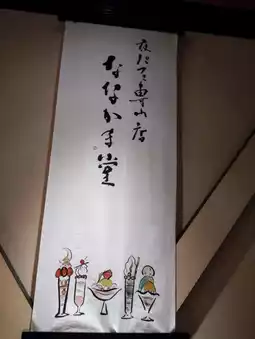 夜パフェ専門店
ななかま堂